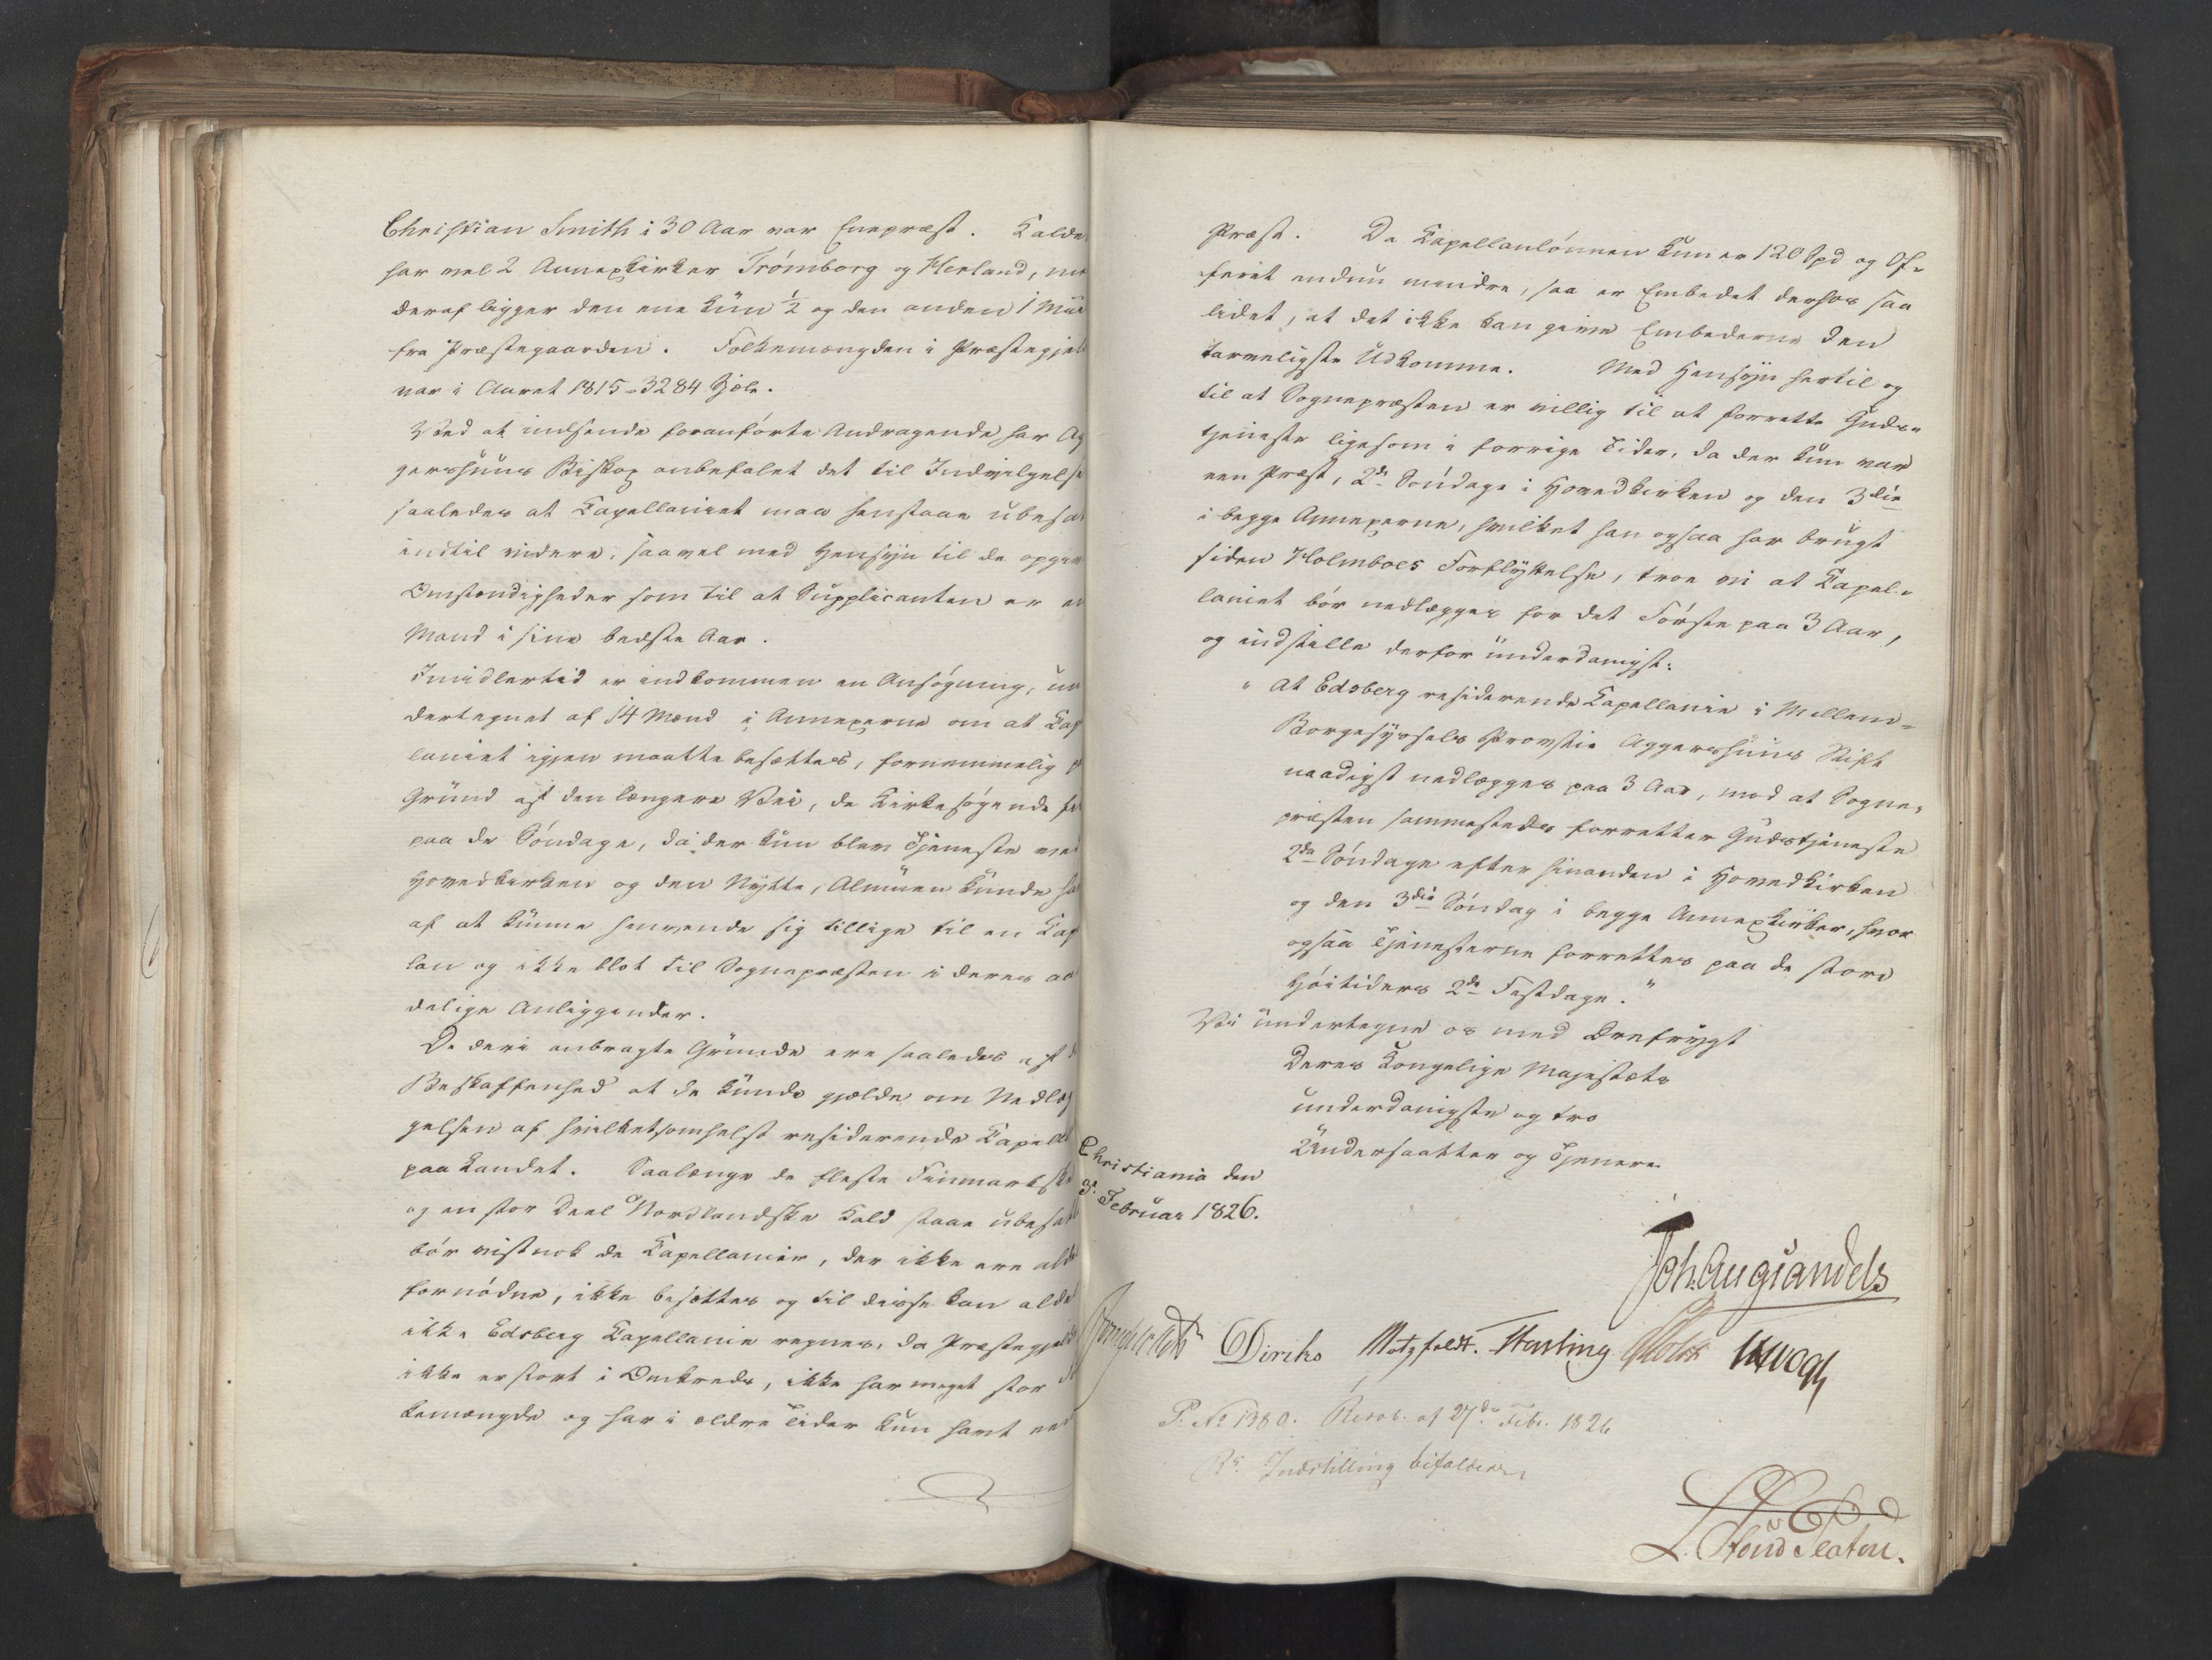 Christian Smith i 30 Aar var Enepræst. Kalde
har vel 2 Annexkirker Trömborg og Herland, me
deraf ligger den ene kun ½ og den anden 1 Miil
fra Præstegaarden. Folkemængden i Præstegjel
var i Aaret 1815 = 3284 Sjæle.
Ved at indsende foranførte Andragende har Ag
gershuus Biskop anbefalet det til Indvilgelse
saaledes at Capellaniet maa henstaae ubesat
indtil videre, saavel med Hensyn til de opgivn
Omstændigheder som til at Supplicanten er en
Mand i sine bedste Aar.
Imidlertid er indkommen en Ansøgning, un
dertegnet af 14 Mænd i Annexerne om at Cap
laniet igjen maatte besættes, fornemmelig p
Grund af den længere Vei, de Kirkesøgende fik
paa de Søndage, da der kun blev Tjeneste ved
Hovedkirken og den Nytte, Almuen kunde ha
af at kunne henvende sig tillige til en Cap
lan og ikke blot til Sognepræsten i deres aan
delige Anliggender.
De deri anbragte Grunde ere saaledes af d
Beskaffenhed at de kunde gjelde om Nedlæg
gelsen af hvilketsomhelst residerende Capell
paa Landet. Saalænge de fleste Finmarkske
og en stor Deel Nordlandske Kald staae ubesatte
bør vistnok de Capellanier, der ikke ere alde
fornødne, ikke besættes og til disse kan alde
ikke Edsberg Capellanie regnes, da Præstegjeldet
ikke er stort i Omkreds, ikke har meget stor
kemængde og har i ældre Tider kun havt een
Præst. Da Capellanlønnen kun er 120 Spd og Of-
feret endnu mindre, saa er Embedet derhos saa
lidet, at det ikke kan give Embederne den
tarveligste Udkomme. Med Hensyn hertil og
til at Sognepræsten er villig til at forrette Guds-
tjeneste ligesom i forrige Tider, da der kun var
een Præst, 2de Søndage i Hovedkirken og den 3die
i begge Annexerne, hvilket han ogsaa har brugt
siden Holmboes Forflyttelse, troe vi at Capel-
laniet bør nedlægges for det Første paa 3 Aar,
og indstille derfor underdanigst:
"At Edsberg residerende Capellanie i Mellem-
Borgesyssels Provstie Aggershuus Stift
naadigst nedlægges paa 3 Aar, mod at Sogne-
præsten sammesteds forretter Gudstjeneste
2de Søndage efter hinanden i Hovedkirken
og den 3die Søndag i begge Annexkirker, hvor
ogsaa Tjenesterne forrettes paa de store
Høitiders 2de Festdage."
Vi undertegne os med Ærefrygt
Deres Kongelige Majestæts
underdanigste og tro
Undersaatter og Tjenere
Christiania den
3. Februar 1826.
Joh. Aug. Sandels
Diriks Motzfeldt. Hasting Holst
P. No 1380. Resol. af 27de Febr. 1826
Rs. Indstilling bifaldes